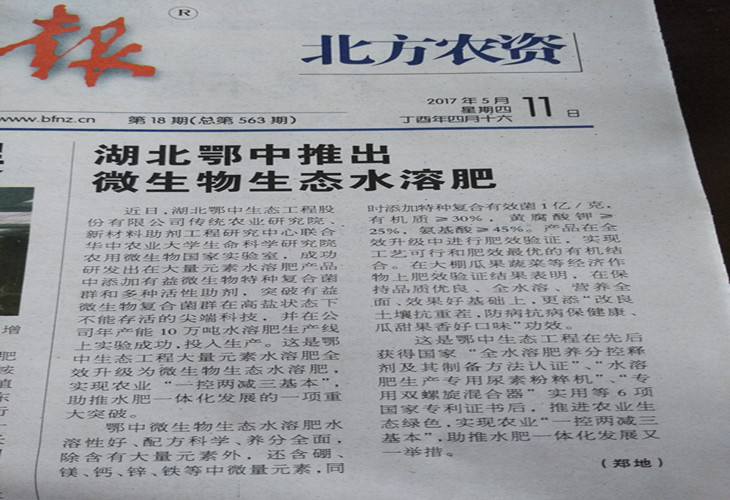 报
®
北方农资
www.bfnz.cn
第18期(总第563期)
2017年5月
星期四
11日
丁酉年四月十六
湖北鄂中推出
微生物生态水溶肥
近日,湖北鄂中生态工程股
份有限公司传统农业研究院、
新材料助剂工程研究中心联合
华中农业大学生命科学研究院
农用微生物国家实验室,成功
研发出在大量元素水溶肥产品
中添加有益微生物特种复合菌
群和多种活性助剂,突破有益
微生物复合菌群在高盐状态下
不能存活的尖端科技,并在公
司年产能10万吨水溶肥生产线
上实验成功,投入生产。这是鄂
中生态工程大量元素水溶肥全
效升级为微生物生态水溶肥,
实现农业“一控两减三基本”,
助推水肥一体化发展的一项重
大突破。
鄂中微生物生态水溶肥水
溶性好、配方科学、养分全面,
除含有大量元素外,还含硼、
镁、钙、锌、铁等中微量元素,同
时添加特种复合有效菌1亿/克,
有机质≥30%,黄腐酸钾≥
25%,氨基酸≥45%。产品在全
效升级中进行肥效验证,实现
工艺可行和肥效最优的有机结
合。在大棚瓜果蔬菜等经济作
物上肥效验证结果表明,在保
持品质优良、全水溶、营养全
面、效果好基础上,更添“改良
土壤抗重茬,防病抗病保健康、
瓜甜果香好口味”功效。
这是鄂中生态工程在先后
获得国家“全水溶肥养分控释
剂及其制备方法认证”、“水溶
肥生产专用尿素粉粹机”、“专
用双螺旋混合器”实用等6项
国家专利证书后,推进农业生
态绿色,实现农业“一控两减三
基本”,助推水肥一体化发展又
一举措。
(郑地)
增
肥
按
值